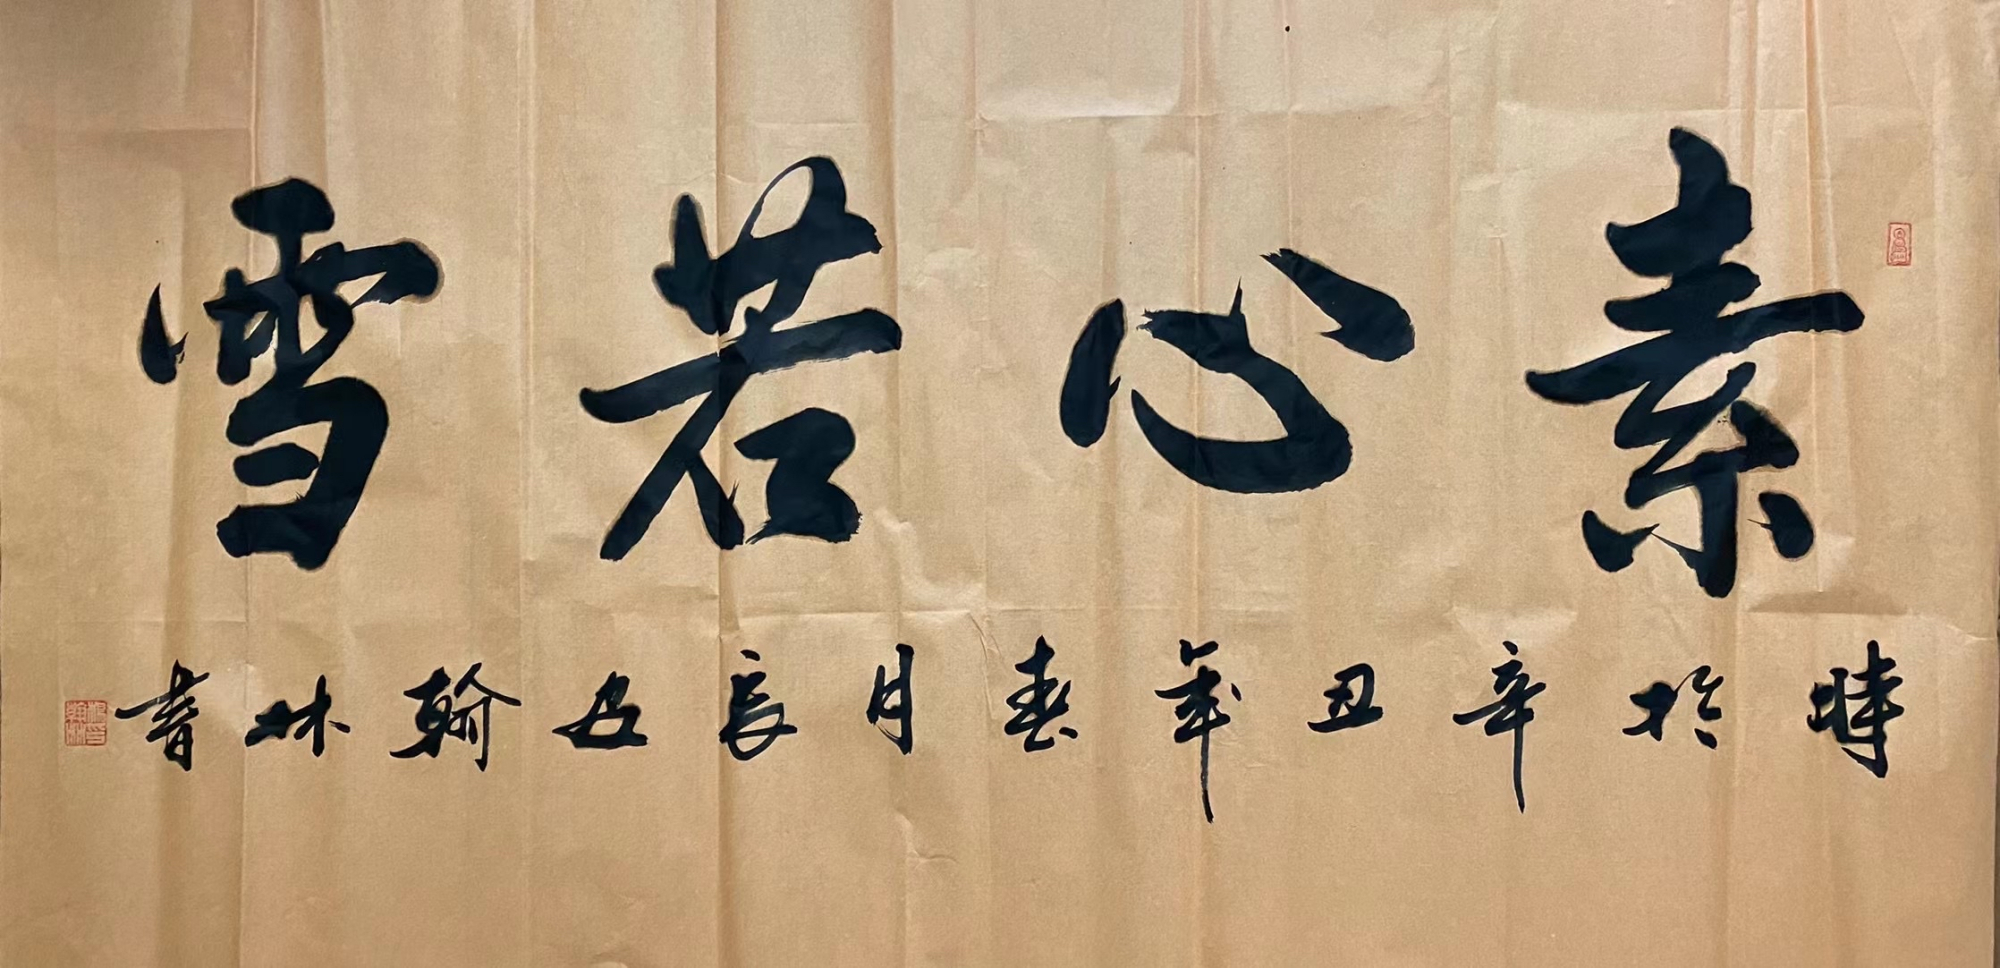 素心若雪
時於辛丑年春月長安翰林書